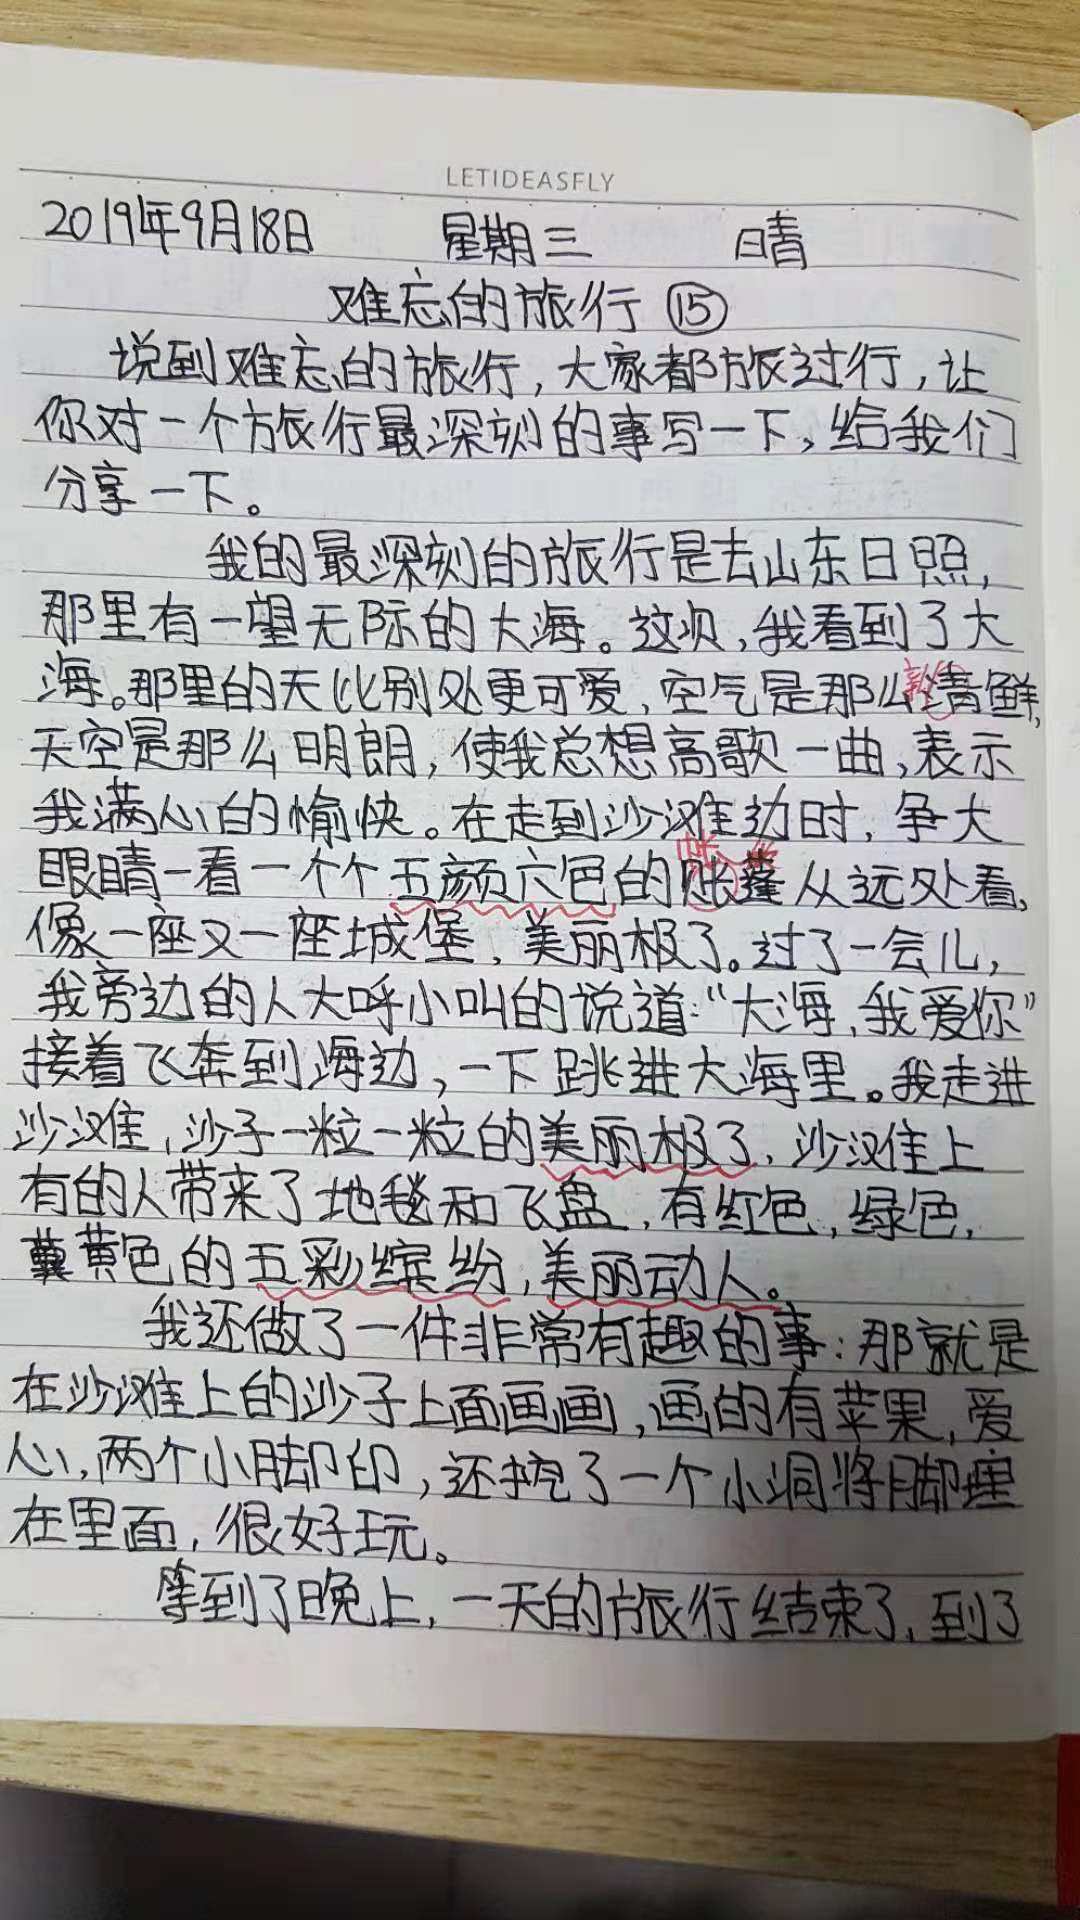 LETIDEASFLY
2019年9月18日 星期三 晴
难忘的旅行 ⑮
说到难忘的旅行，大家都旅过行，让
你对一个旅行最深刻的事写一下，给我们
分享一下。
我的最深刻的旅行是去山东日照，
那里有一望无际的大海。这次，我看到了大
海。那里的天比别处更可爱，空气是那么清鲜，
新
天空是那么明朗，使我总想高歌一曲，表示
我满心的愉快。在走到沙滩边时，争大
眼睛一看一个个五颜六色的账篷从远处看，
帐
像一座又一座城堡，美丽极了。过了一会儿，
我旁边的人大呼小叫的说道：“大海，我爱你”
接着飞奔到海边，一下跳进大海里。我走进
沙滩，沙子一粒一粒的美丽极了，沙滩上
有的人带来了地毯和飞盘，有红色，绿色，
黄色的五彩缤纷，美丽动人。
我还做了一件非常有趣的事：那就是
在沙滩上的沙子上面画画，画的有苹果，爱
心，两个小脚印，还挖了一个小洞将脚埋
在里面，很好玩。
等到了晚上，一天的旅行结束了，到了